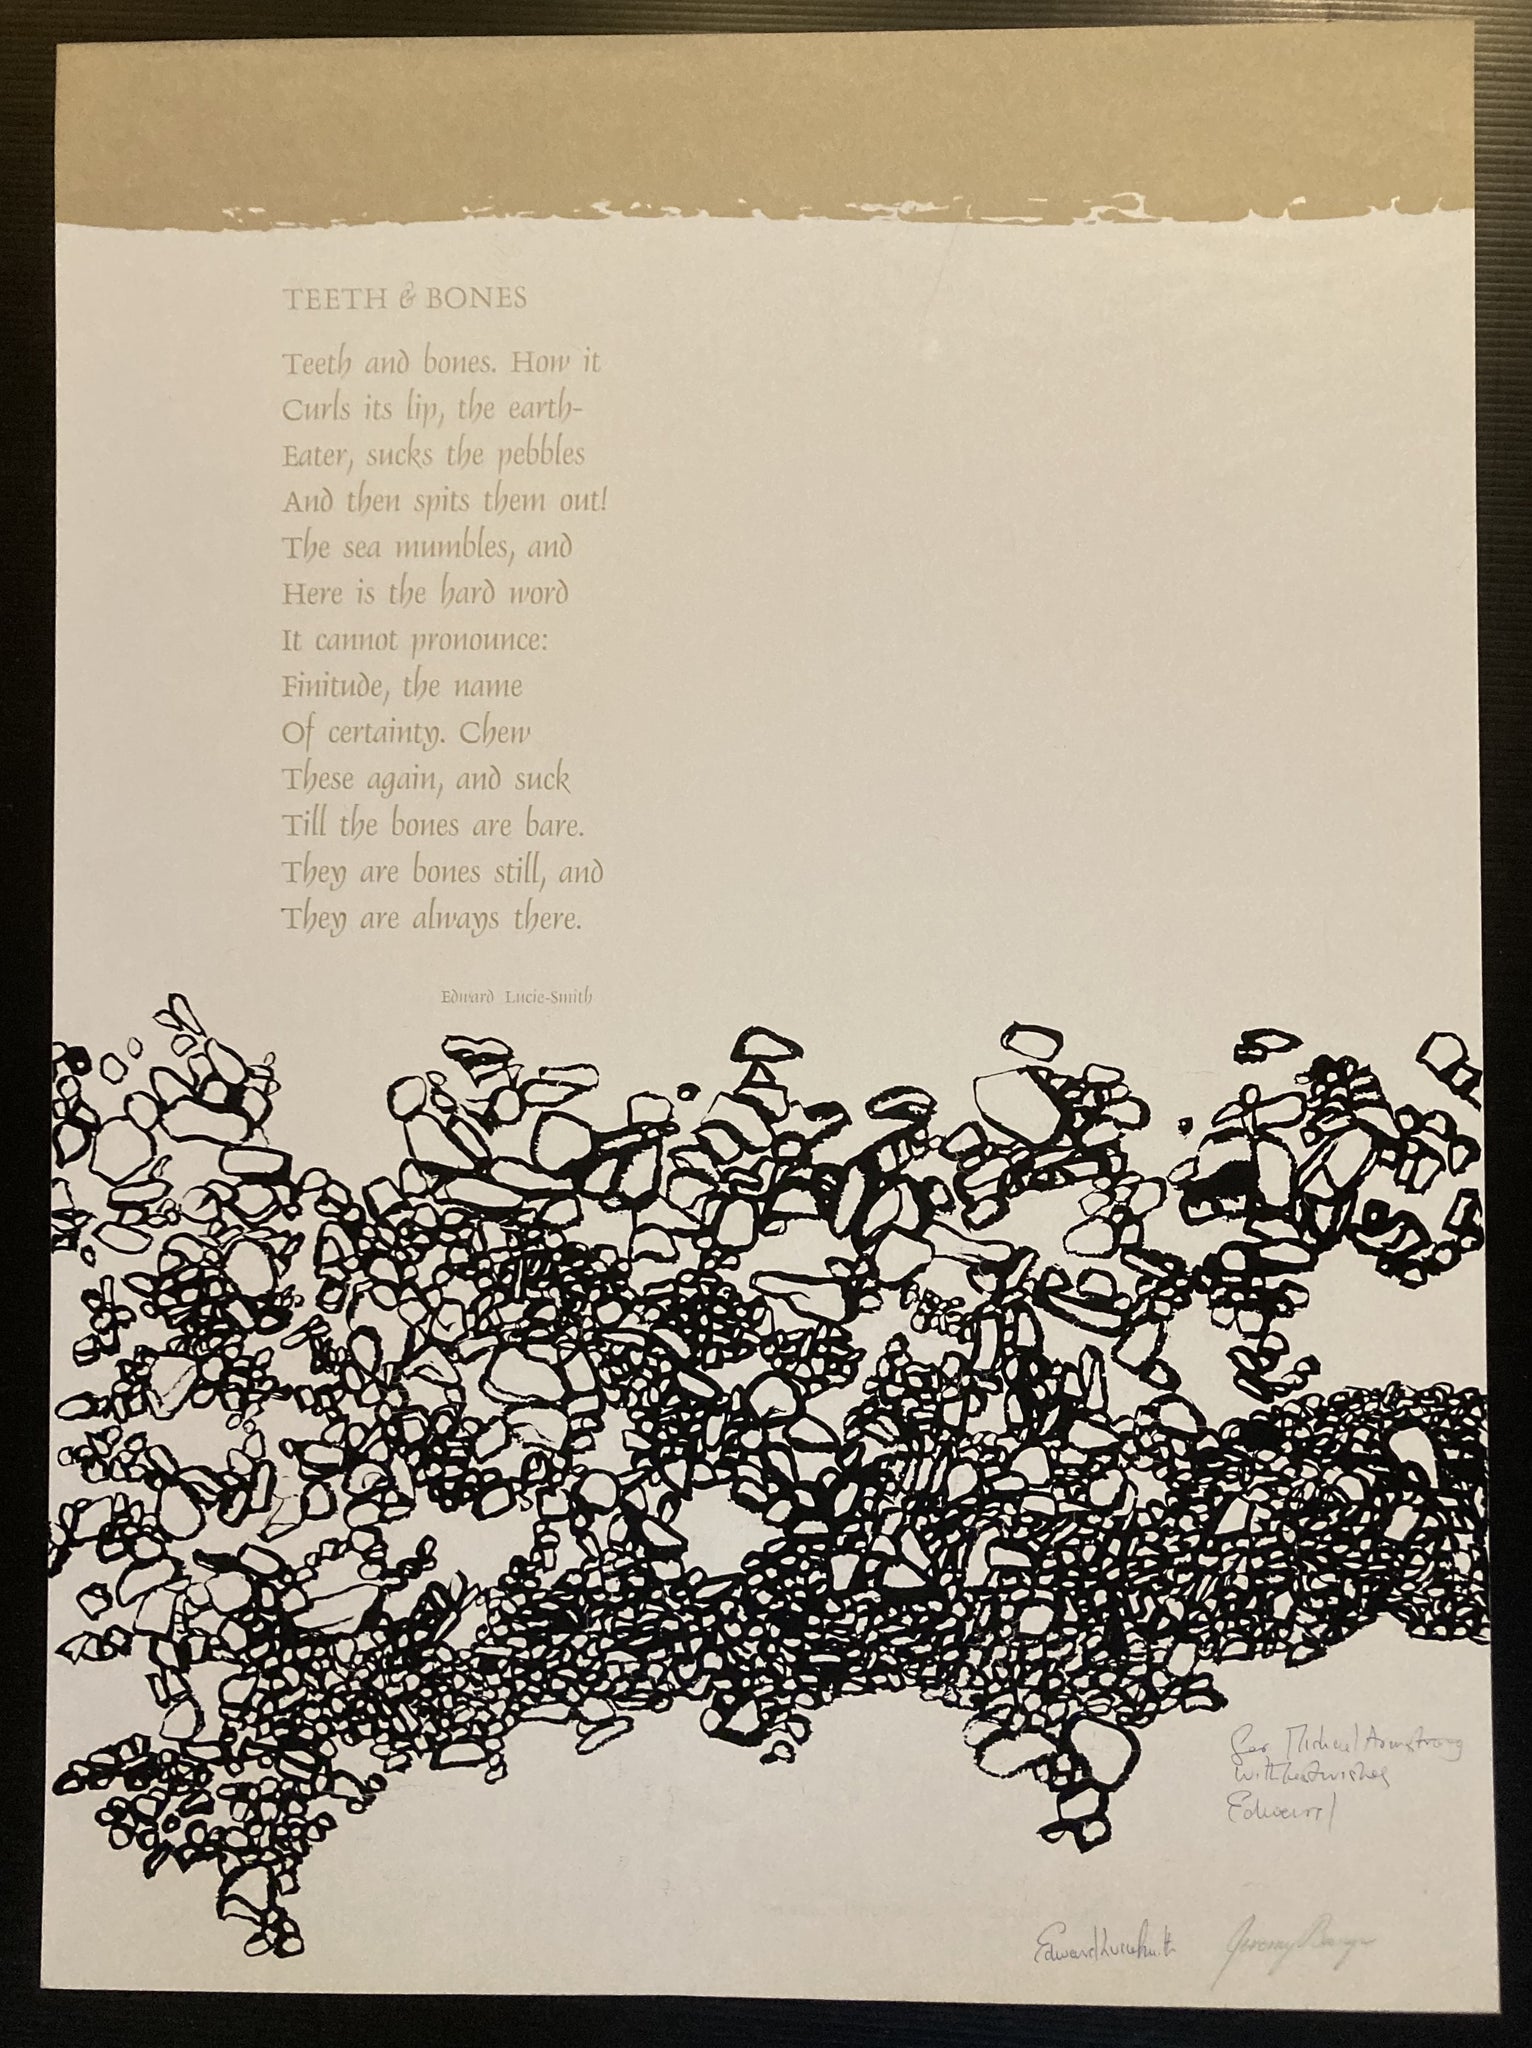 TEETH & BONES
Teeth and bones. How it
Curls its lip, the earth-
Eater, sucks the pebbles
And then spits them out!
The sea mumbles, and
Here is the hard word
It cannot pronounce:
Finitude, the name
Of certainty. Chew
These again, and suck
Till the bones are bare.
They are bones still, and
They are always there.
Edward Lucie-Smith
for Michael Armstrong
with best wishes
Edward
Edward Lucie-Smith Jeremy